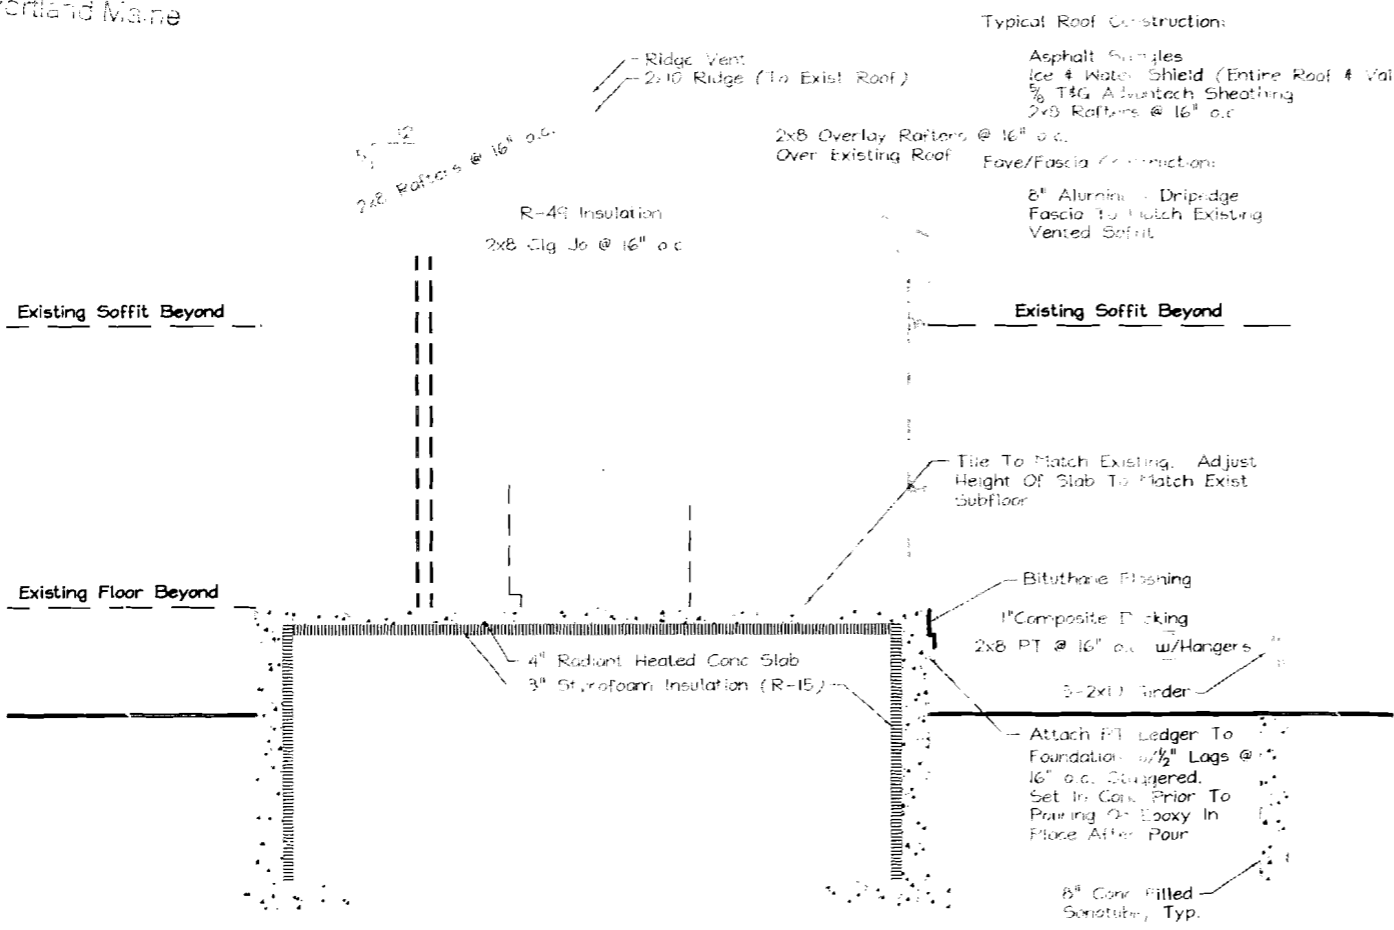 Portland Maine
Typical Roof Construction:
Asphalt Shingles
Ice & Water Shield (Entire Roof & Val
5/8 T&G Advantech Sheathing
2x8 Rafters @ 16" o.c.
Ridge Vent
2x10 Ridge (To Exist Roof)
12
5
2x8 Rafters @ 16" o.c.
2x8 Overlay Rafters @ 16" o.c.
Over Existing Roof
Eave/Fascia Construction:
8" Aluminum Dripedge
Fascia To Match Existing
Vented Soffit
R-49 Insulation
2x8 Clg Js @ 16" o.c
Existing Soffit Beyond
Existing Soffit Beyond
Tile To Match Existing. Adjust
Height Of Slab To Match Exist
Subfloor
Existing Floor Beyond
Bituthane Flashing
1" Composite Decking
2x8 PT @ 16" o.c. w/Hangers
3-2x10 Girder
4" Radiant Heated Conc Slab
3" Styrofoam Insulation (R-15)
Attach PT Ledger To
Foundation w/½" Lags @
16" o.c. Staggered.
Set In Conc Prior To
Pouring Or Epoxy In
Place After Pour
8" Conc Filled
Sonotube, Typ.